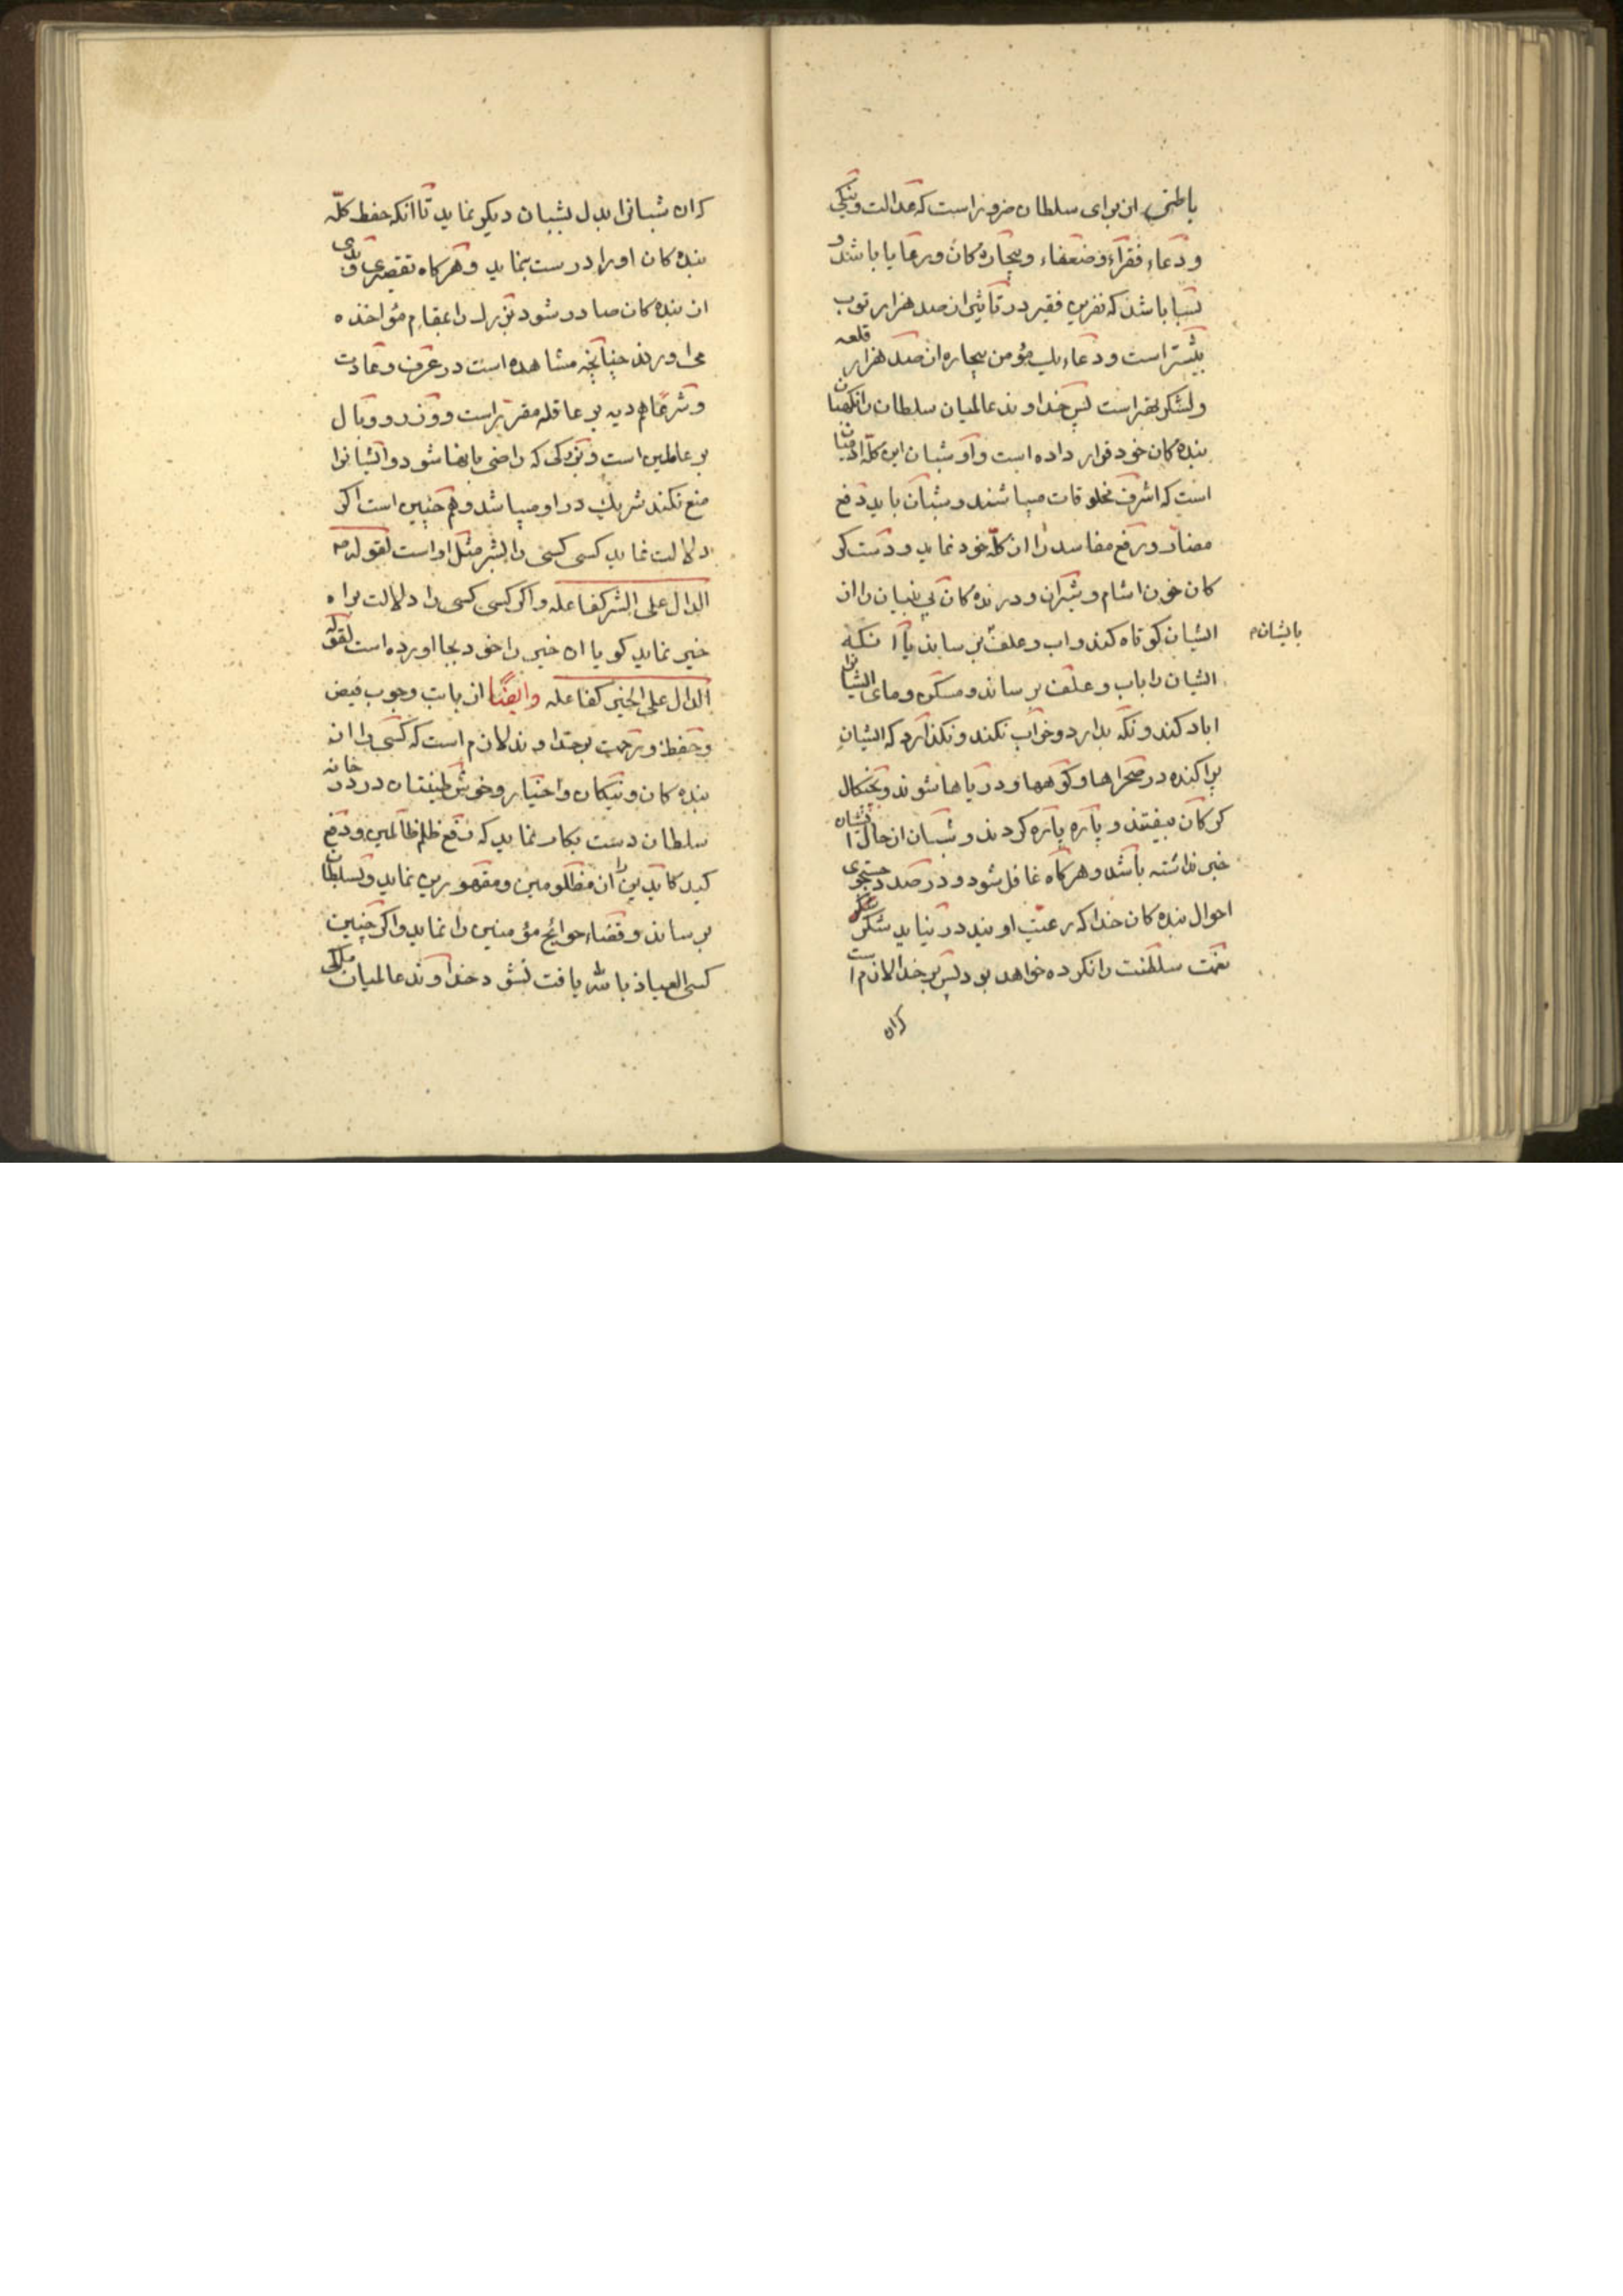 باطنی از برای سلطان ضرور است که عدالت و نیکی
و دعاء فقراء و ضعفاء و بیچاره کان و رعایا باشد و
بسا باشد که نفرین فقیر در تاثیر از صد هزار توب
بیشتر است و دعاء یک مؤمن بیچاره از صد هزار قلعه
و لشکر بهتر است پس خداوند عالمیان سلطان را نکهبان
بنده کان خود قرار داده است و او شبان این کلّه ادمیان
است که اشرف مخلوقات میباشند و شبان باید دفع
مضار و رفع مفاسد را از کلّه خود نماید و دست کر
کان خون اشام و شیران و درنده کان بی بنیان را از
ایشان کوتاه کند و اب و علف برساند یا انکه
بایشان
ایشان را باب و علف برساند و مسکن و مای ایشانرا
اباد کند و نکه بدارد و خواب نکند و نکذارد که ایشان
پراکنده در صحراها و کوهها و دریاها شوند و بچنکال
کرکان بیفتند و پاره پاره کردند و شبان از حال ایشان
خبر نداشته باشد و هرکاه غافل شود و در صدد جستجوی
احوال بنده کان خدا که رعیّت اویند در نیاید شکر
نعمت سلطنت را نکرده خواهد بود پس بر خدا لازم است
کران
کران شبانرا بدل بشبان دیکر نماید تا انکه حفظ کلّه
بنده کان او را درست بنماید و هرکاه تقصیری و بدی
از بنده کان صادر شود بزرک را بمقام مؤاخذه
می اورند چنانچه مشاهده است در عرف و عادت
و شرعًا هم دیه بر عاقله مقرر است و وزر و وبال
بر عاملین است و بزرکی که راضی بانها شود و ایشانرا
منع نکند شریک در او میباشد و هم چنین است اکر
دلالت نماید کسی کسی را بشر مثل او است لقوله
الدال علی الشر کفاعله و اکر کسی کسی را دلالت براه
خیر نماید کویا ان خیر را خود بجا اورده است لقوله
الدال علی الخیر کفاعله وایضًا از بابت وجوب فیض
و حفظ و رحمت بر خداوند لازم است که کسی را از
بنده کان و نیکان و اخیار و خوش طینتان در در خانه
سلطان دست بکار نماید که رفع ظلم ظالمین و دفع
کید کایدین را از مظلومین و مقهورین نماید و بسلطان
برساند و قضاء حوائج مؤمنین را نماید و اکر چنین
کسی العیاذ بالله یافت نشود خداوند عالمیان ملکی